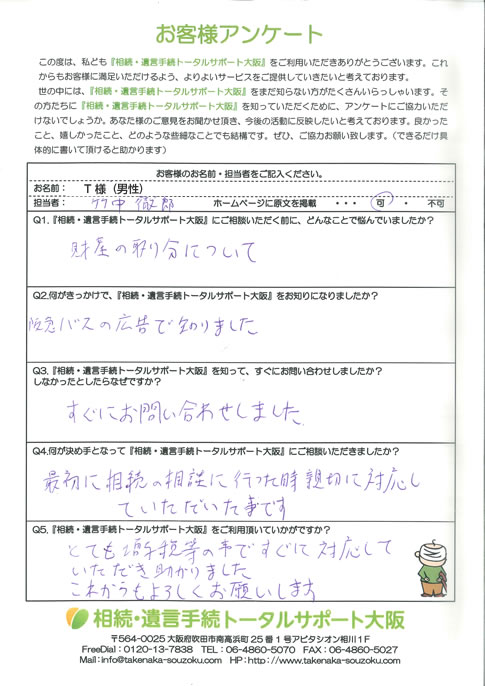 お客様アンケート
この度は、私ども『相続・遺言手続トータルサポート大阪』をご利用いただきありがとうございます。これ
からもお客様に満足いただけるよう、よりよいサービスをご提供していきたいと考えております。
世の中には、『相続・遺言手続トータルサポート大阪』をまだ知らない方がたくさんいらっしゃいます。そ
の方たちに『相続・遺言手続トータルサポート大阪』を知っていただくために、アンケートにご協力いただ
けないでしょうか。あなた様のご意見をお聞かせ頂き、今後の活動に反映したいと考えております。良かった
こと、嬉しかったこと、どのような些細なことでも結構です。ぜひ、ご協力お願い致します。（できるだけ具
体的に書いて頂けると助かります）
お客様のお名前・担当者をご記入ください。
お名前: T様（男性）
担当者: 竹中 徹郎 ホームページに原文を掲載 ・・・ 可 ・ 不可
Q1.『相続・遺言手続トータルサポート大阪』にご相談いただく前に、どんなことで悩んでいましたか?
財産の取り分について
Q2.何がきっかけで、『相続・遺言手続トータルサポート大阪』をお知りになりましたか?
阪急バスの広告で知りました
Q3.『相続・遺言手続トータルサポート大阪』を知って、すぐにお問い合わせしましたか?
しなかったとしたらなぜですか?
すぐにお問い合わせしました.
Q4.何が決め手となって『相続・遺言手続トータルサポート大阪』にご相談いただきましたか?
最初に相続の相談に行った時親切に対応し
ていただいた事です
Q5.『相続・遺言手続トータルサポート大阪』をご利用頂いていかがですか?
とても贈与税等の事ですぐに対応して
いただき助かりました
これからもよろしくお願いします
相続・遺言手続トータルサポート大阪
〒564-0025 大阪府吹田市南高浜町25番1号アビタシオン相川1F
FreeDial：0120-13-7838 TEL：06-4860-5070 FAX：06-4860-5027
Mail：info@takenaka-souzoku.com HP：http://www.takenaka-souzoku.com